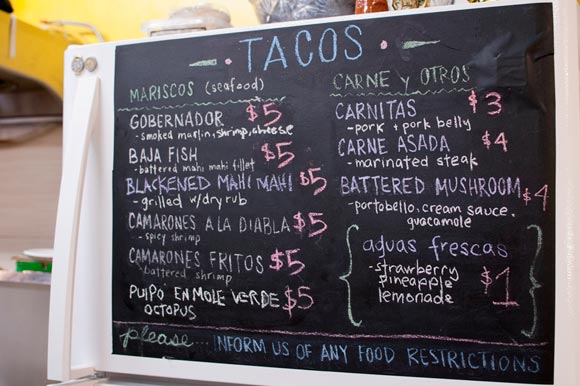 TACOS
MARISCOS (seafood)
GOBERNADOR $5
- smoked marlin, shrimp, cheese
BAJA FISH $5
- battered mahi mahi fillet
BLACKENED MAHI MAHI $5
- grilled w/ dry rub
CAMARONES A LA DIABLA $5
- spicy shrimp
CAMARONES FRITOS $5
- battered shrimp
PULPO EN MOLE VERDE $5
OCTOPUS
CARNE y OTROS
CARNITAS $3
- pork + pork belly
CARNE ASADA $4
- marinated steak
BATTERED MUSHROOM $4
- portobello, cream sauce,
guacamole
aguas frescas
- strawberry $1
pineapple
lemonade
please... INFORM US OF ANY FOOD RESTRICTIONS